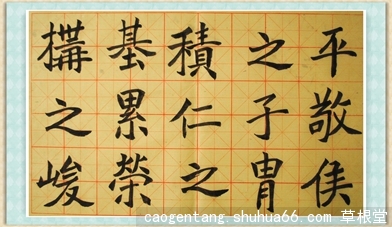 平敬侯
之子胄
積仁之
基累榮
構之峻
caogentang.shuhua66.com 草根堂